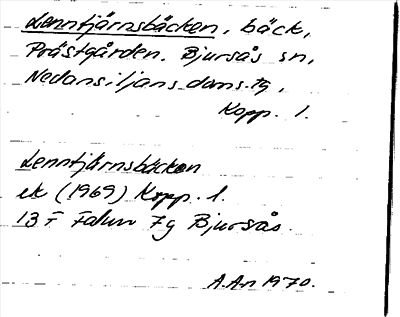 Lenntjärnsbäcken, bäck,
Prästgården. Bjursås sn,
Nedansiljans doms.tg,
Kopp. l.
Lenntjärnsbäcken
ek (1969) Kopp. l.
13 F Falun 7g Bjursås.
A.An 1970.